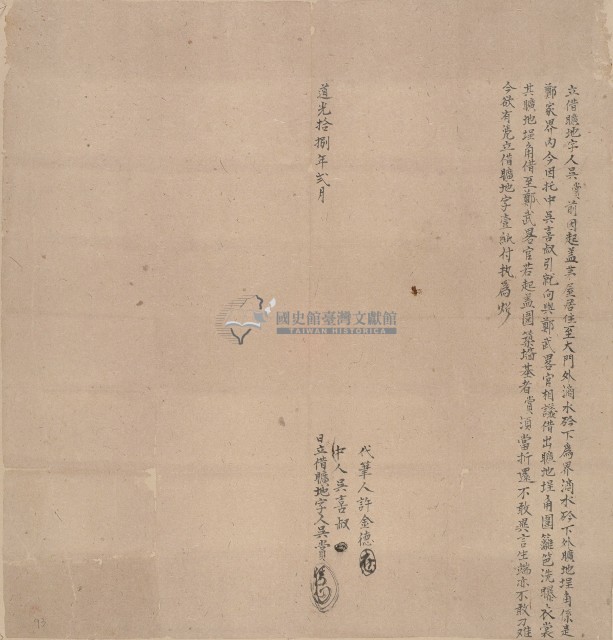 立借曠地字人吳賞前因起盖茅屋居住至大門外滴水砱下為界滴水砱下外曠地埕角係是
鄭家界內今因托中吳喜叔引就向與鄭武畧官相議借出曠地埕角圍籬笆洗曝衣裳
其曠地埕角借至鄭武畧官若起盖圍築墻基者賞須當折還不敢異言生端亦不敢刁難
今欲有凭立借曠地字壹紙付执為炤
道光拾捌年弍月
代筆人許金德
中人吳喜叔
日立借曠地字人吳賞
國史館臺灣文獻館
TAIWAN HISTORICA